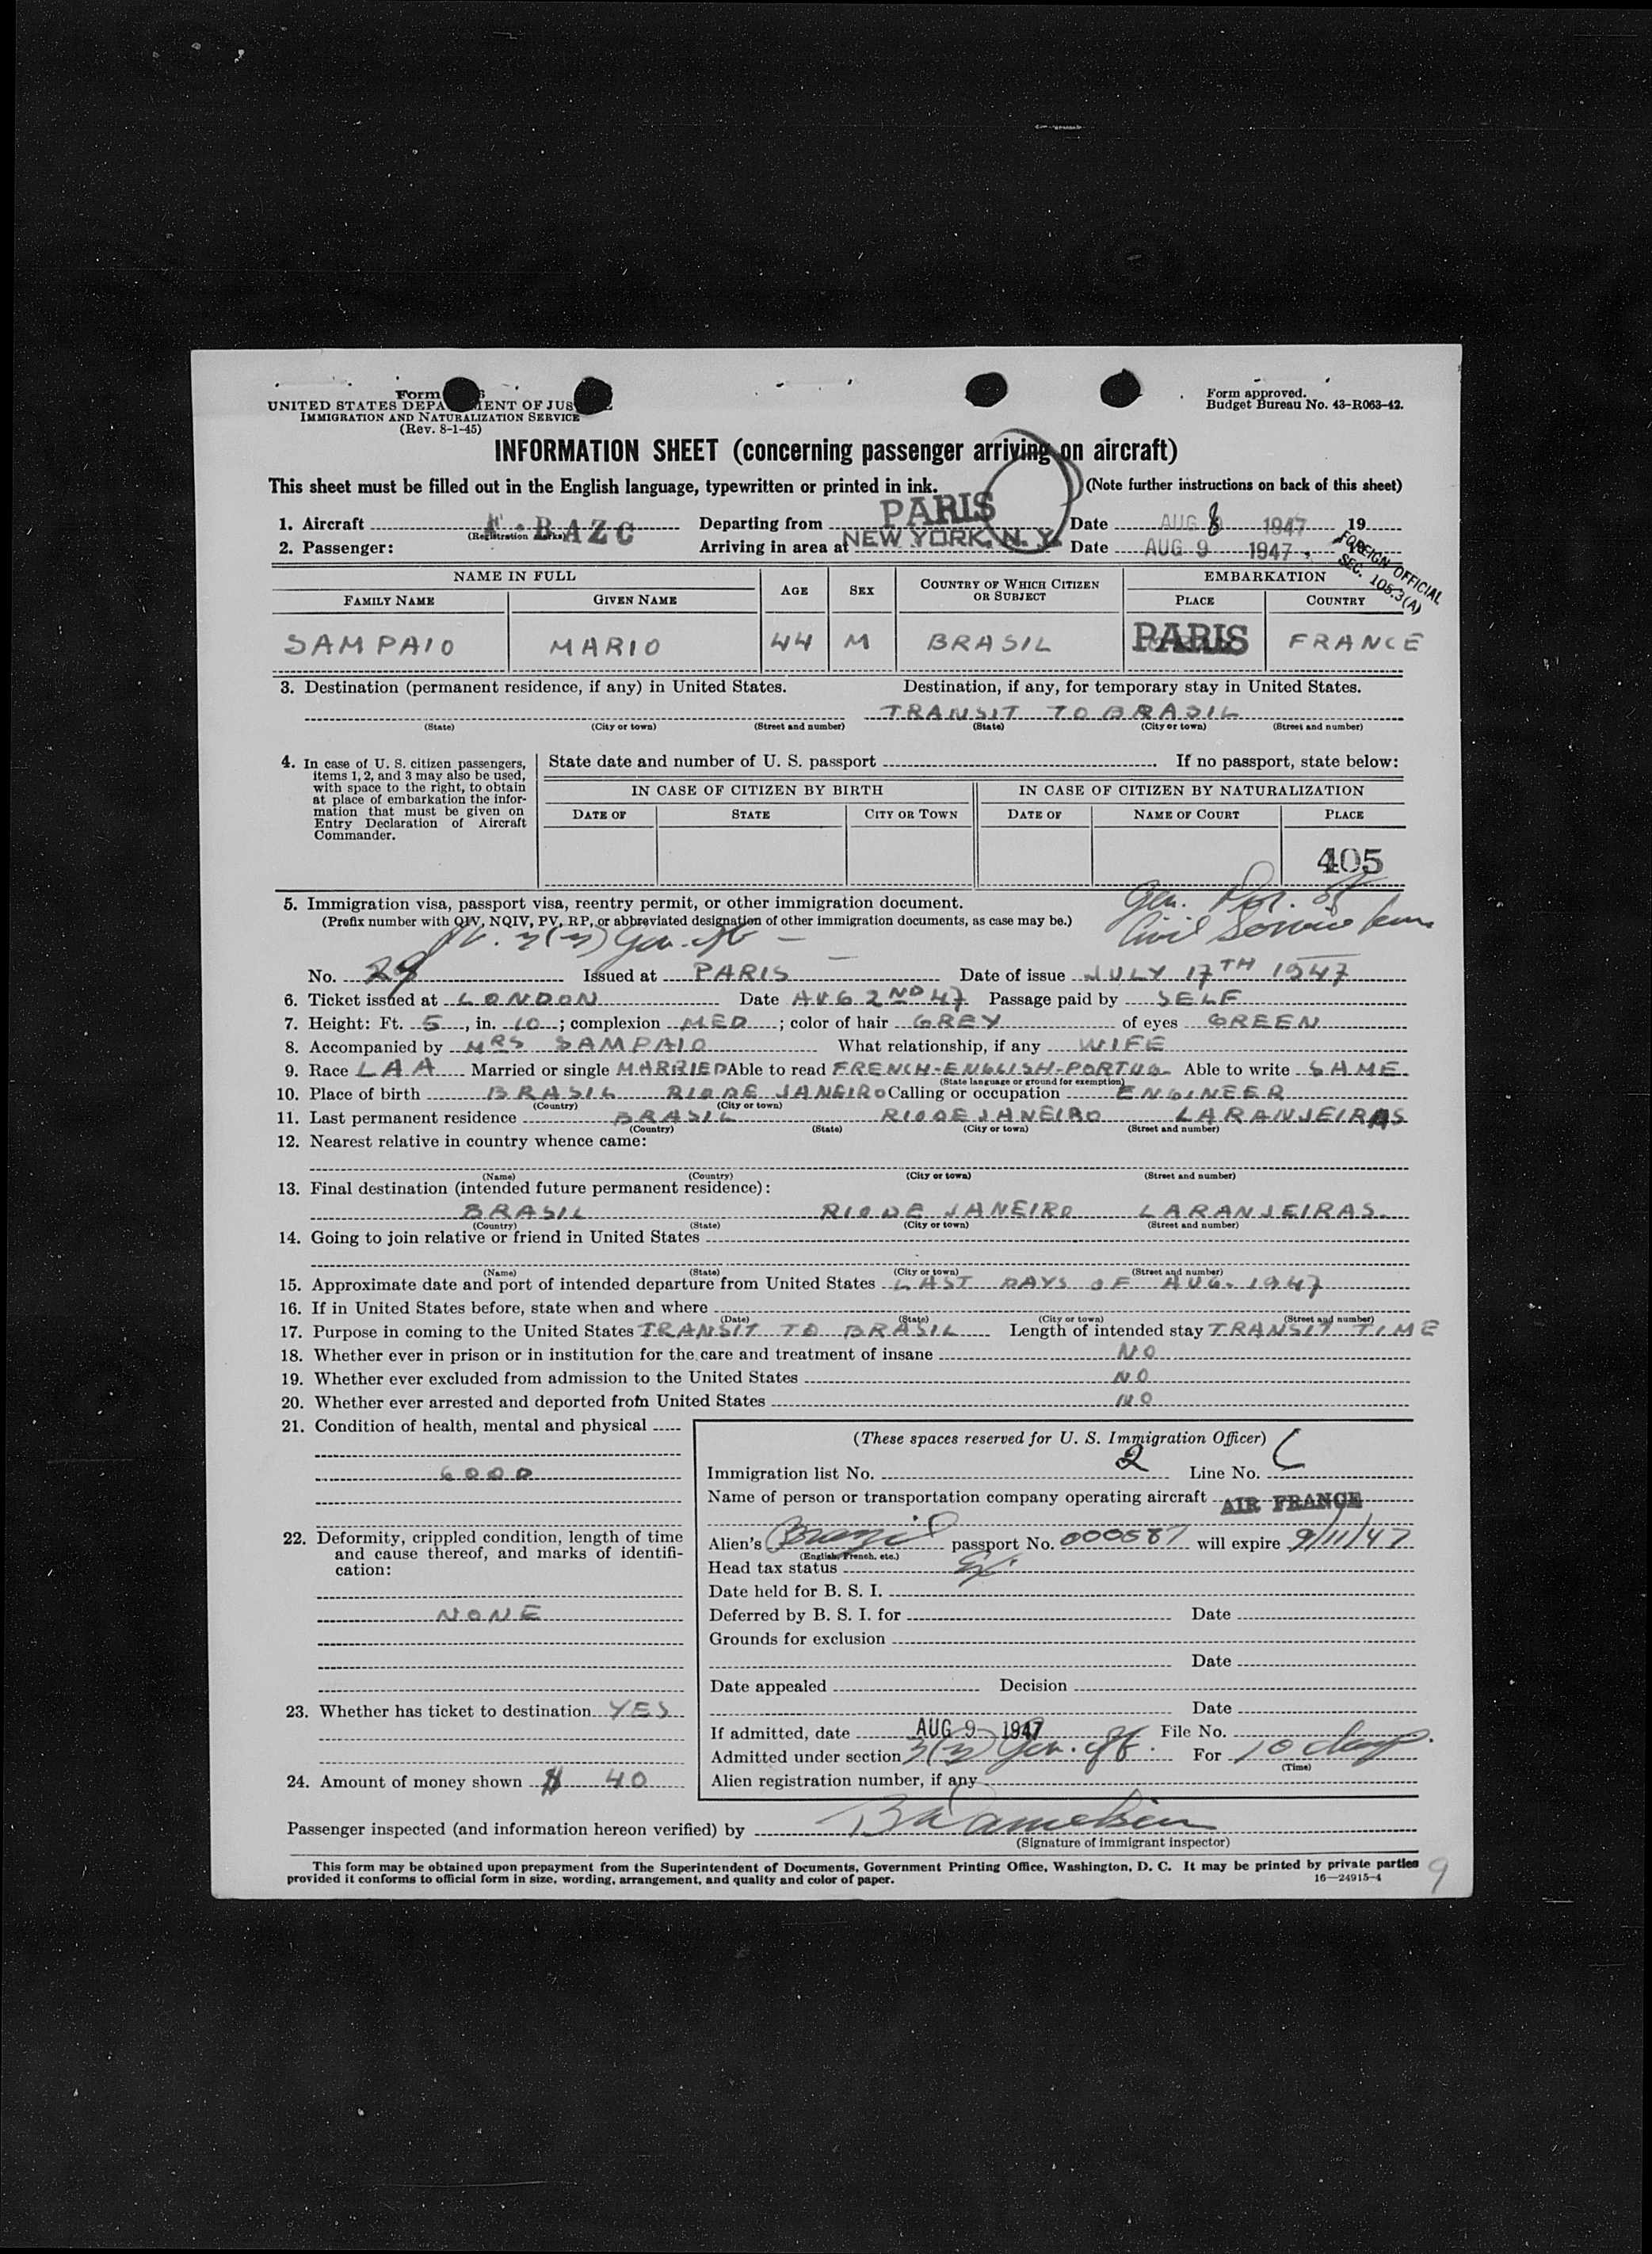 Form
UNITED STATES DEPA MENT OF JUS
IMMIGRATION AND NATURALIZATION SERVICE
(Rev. 8-1-45)
Form approved.
Budget Bureau No. 43-R063-42.
INFORMATION SHEET (concerning passenger arriving on aircraft)
This sheet must be filled out in the English language, typewritten or printed in ink.
(Note further instructions on back of this sheet)
1. Aircraft F-BAZC Departing from PARIS Date AUG 8 1947 19
(Registration marks)
2. Passenger: Arriving in area at NEW YORK, N. Y. Date AUG 9 1947
FOREIGN OFFICIAL
SEC. 105.3(A)
NAME IN FULL AGE SEX COUNTRY OF WHICH CITIZEN OR SUBJECT EMBARKATION
FAMILY NAME GIVEN NAME PLACE COUNTRY
SAMPAIO MARIO 44 M BRASIL PARIS FRANCE
3. Destination (permanent residence, if any) in United States. Destination, if any, for temporary stay in United States.
TRANSIT TO BRASIL
(State) (City or town) (Street and number) (State) (City or town) (Street and number)
4. In case of U. S. citizen passengers,
items 1, 2, and 3 may also be used,
with space to the right, to obtain
at place of embarkation the infor-
mation that must be given on
Entry Declaration of Aircraft
Commander.
State date and number of U. S. passport If no passport, state below:
IN CASE OF CITIZEN BY BIRTH IN CASE OF CITIZEN BY NATURALIZATION
DATE OF STATE CITY OR TOWN DATE OF NAME OF COURT PLACE
405
5. Immigration visa, passport visa, reentry permit, or other immigration document.
Gen.
Civil Service
(Prefix number with QIV, NQIV, PV, RP, or abbreviated designation of other immigration documents, as case may be.)
3(3) Gov. off
No. 29 Issued at PARIS Date of issue JULY 17TH 1947
6. Ticket issued at LONDON Date AUG 2ND 47 Passage paid by SELF
7. Height: Ft. 5, in. 10; complexion MED; color of hair GREY of eyes GREEN
8. Accompanied by MRS SAMPAIO What relationship, if any WIFE
9. Race LAA Married or single MARRIED Able to read FRENCH-ENGLISH-PORTUG. Able to write SAME.
(State language or ground for exemption)
10. Place of birth BRASIL RIO DE JANEIRO Calling or occupation ENGINEER
(Country) (City or town)
11. Last permanent residence BRASIL RIO DE JANEIRO LARANJEIRAS
(Country) (State) (City or town) (Street and number)
12. Nearest relative in country whence came:
(Name) (Country) (City or town) (Street and number)
13. Final destination (intended future permanent residence):
BRASIL RIO DE JANEIRO LARANJEIRAS.
(Country) (State) (City or town) (Street and number)
14. Going to join relative or friend in United States
(Name) (State) (City or town) (Street and number)
15. Approximate date and port of intended departure from United States LAST DAYS OF AUG. 1947
16. If in United States before, state when and where
(Date) (State) (City or town) (Street and number)
17. Purpose in coming to the United States TRANSIT TO BRASIL Length of intended stay TRANSIT TIME
18. Whether ever in prison or in institution for the care and treatment of insane NO
19. Whether ever excluded from admission to the United States NO
20. Whether ever arrested and deported from United States NO
21. Condition of health, mental and physical
GOOD
22. Deformity, crippled condition, length of time
and cause thereof, and marks of identifi-
cation:
NONE
23. Whether has ticket to destination YES
24. Amount of money shown $ 40
(These spaces reserved for U. S. Immigration Officer)
Immigration list No. 2 Line No.
Name of person or transportation company operating aircraft AIR FRANCE
Alien's Brazil passport No. 000587 will expire 9/11/47
(English, French, etc.)
Head tax status Ex.
Date held for B. S. I.
Deferred by B. S. I. for Date
Grounds for exclusion
Date
Date appealed Decision
Date
If admitted, date AUG 9 1947 File No.
Admitted under section 3(3) Gov. off. For 10 days.
(Time)
Alien registration number, if any
Passenger inspected (and information hereon verified) by
(Signature of immigrant inspector)
This form may be obtained upon prepayment from the Superintendent of Documents, Government Printing Office, Washington, D. C. It may be printed by private parties
provided it conforms to official form in size, wording, arrangement, and quality and color of paper.
16—24915-4
9